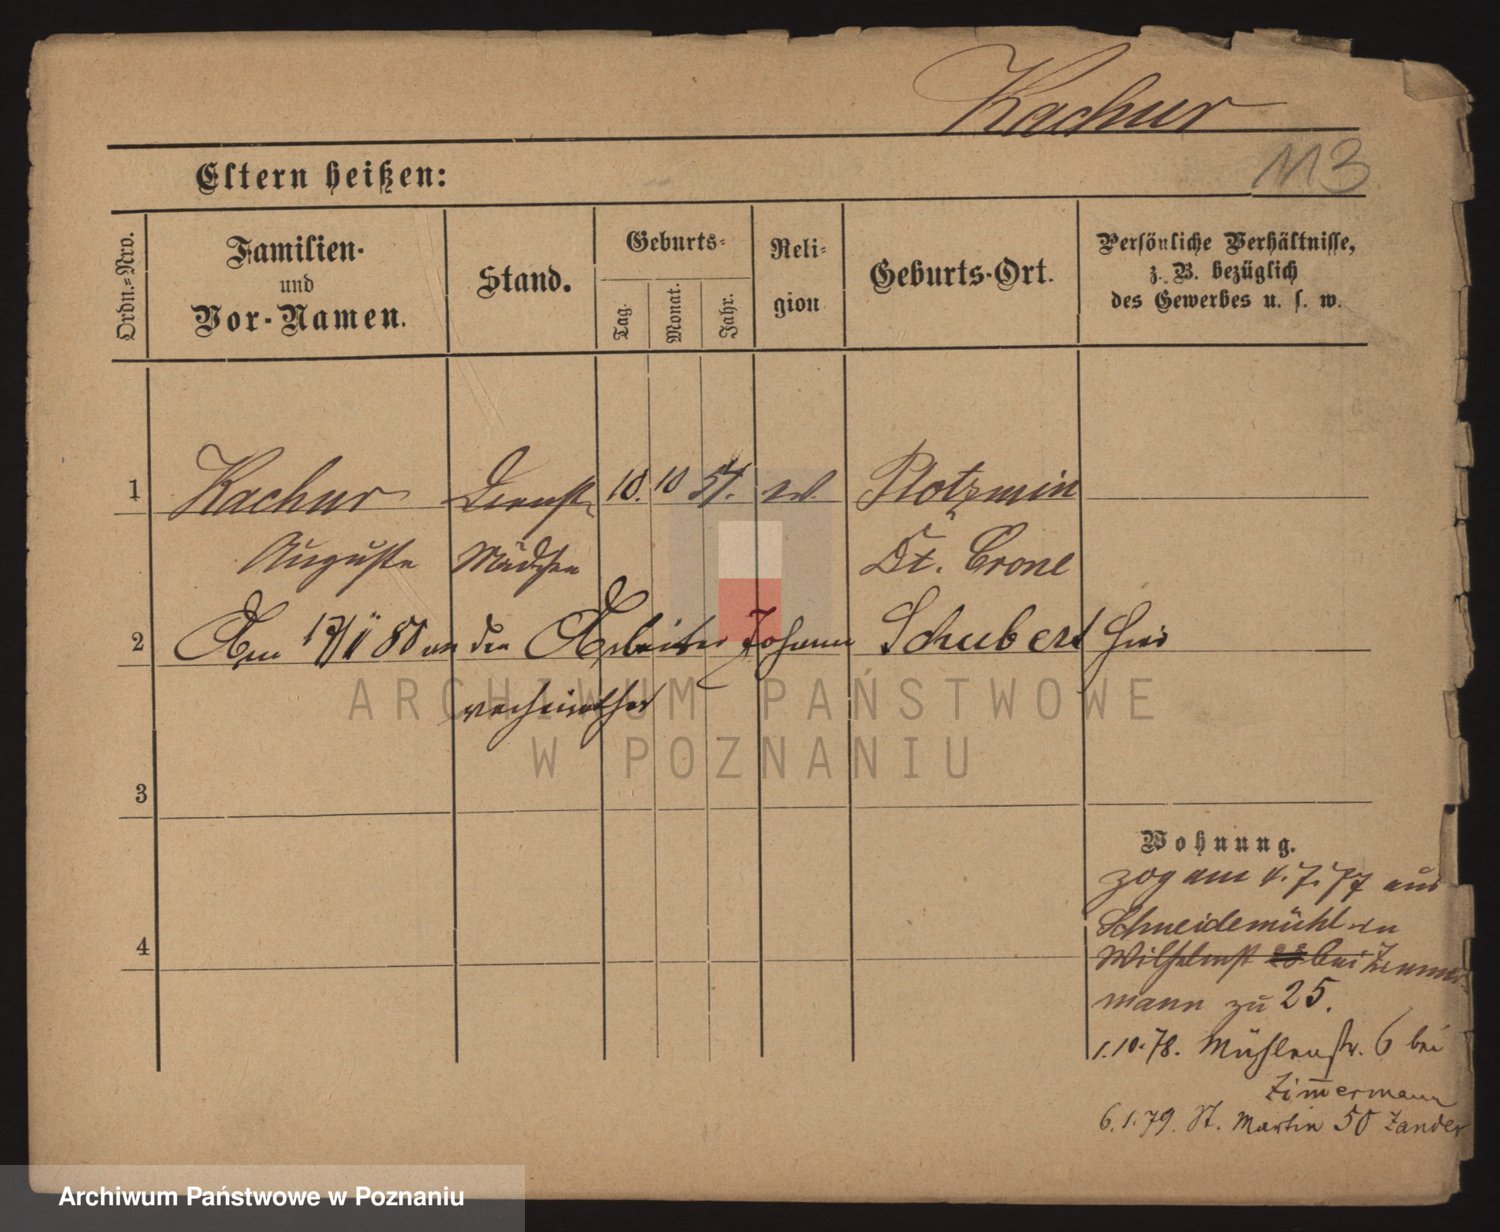 Kachur
113
Eltern heißen:
Ordn.-Nro.
Familien-
und
Vor-Namen.
Stand.
Geburts-
Tag.
Monat.
Jahr.
Reli-
gion
Geburts-Ort.
Persönliche Verhältnisse,
z. B. bezüglich
des Gewerbes u. s. w.
1 Kachur Dienst- 10. 10 57. ev. Plotzmin
Auguste Mädchen Dt. Crone
2 Am 13/11 80 an den Arbeiter Johann Schubert hier
verheirathet
ARCHIWUM PAŃSTWOWE
W POZNANIU
3
Wohnung.
zog am 4.7.77 aus
4 Schneidemühl zu
Wilhelmst 28 bei Zimmer-
mann zu 25.
1.10.78. Mühlenstr. 6 bei
Zimmermann
6.1.79. St. Martin 50 Zander
Archiwum Państwowe w Poznaniu